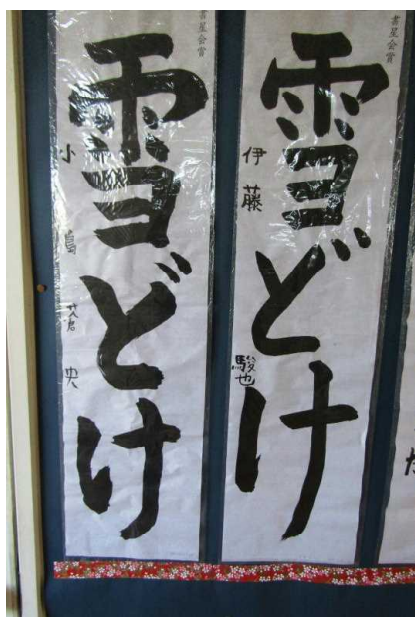 書星会賞
雪どけ
伊藤
駿也
書星会賞
雪どけ
小島